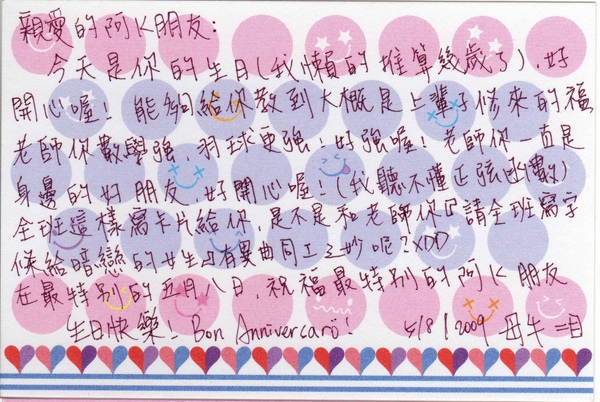 親愛的阿K朋友:
今天是你的生日(我懶的推算幾歲了),好
開心喔!能夠給你教到大概是上輩子修來的福
老師你數學強,羽球更強!好強喔!老師你一直是
身邊的好朋友,好開心喔!(我聽不懂正弦函數)
全班這樣寫卡片給你,是不是和老師你叫請全班寫字
條給暗戀的女生有異曲同工之妙呢?XDD
在最特別的五月八日,祝福最特別的阿K朋友
生日快樂!Bon Annivercaró! 5/8/2009 母牛 二日